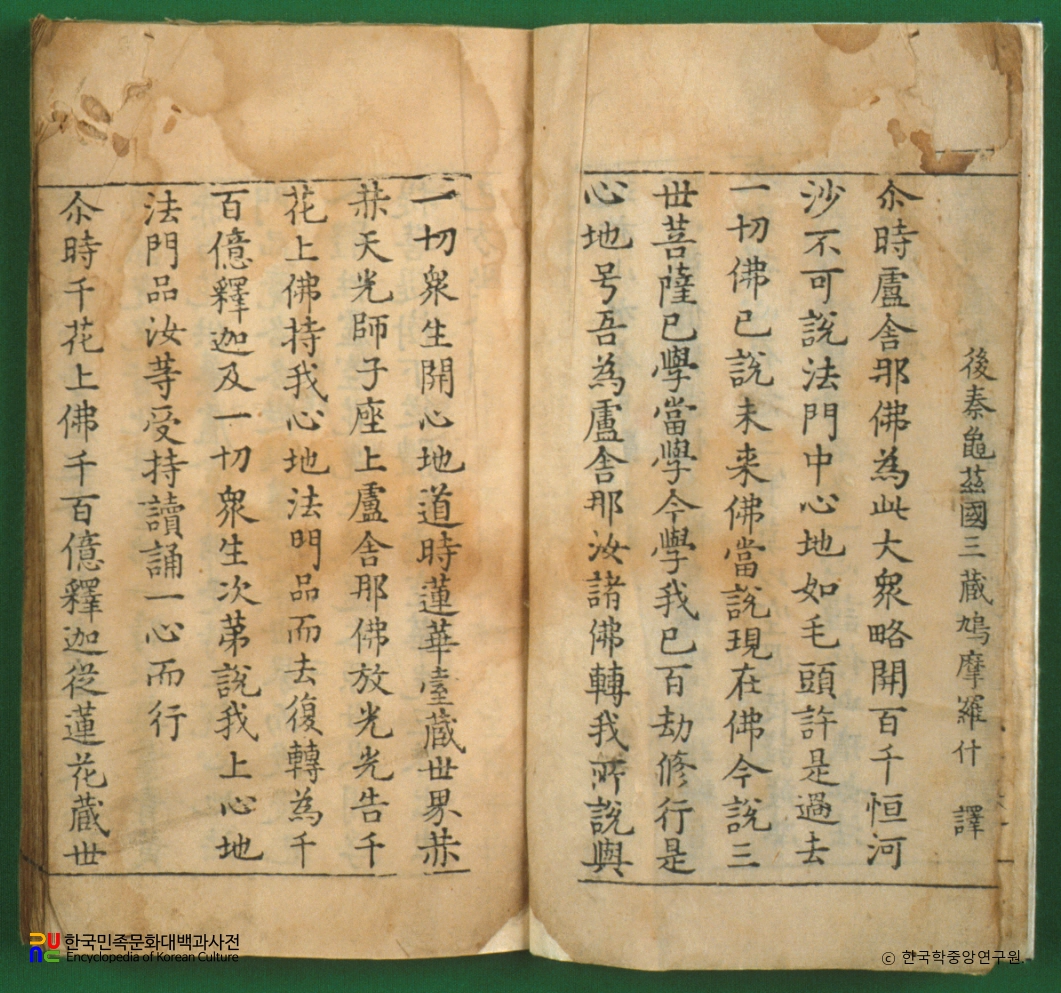 後秦龜茲國三藏鳩摩羅什 譯
尒時盧舍那佛為此大衆略開百千恒河
沙不可說法門中心地如毛頭許是過去
一切佛已說未来佛當說現在佛今說三
世菩薩已學當學今學我已百劫修行是
心地号吾為盧舍那汝諸佛轉我所說與
一切衆生開心地道時蓮華臺藏世界赫
赫天光師子座上盧舍那佛放光光告千
花上佛持我心地法門品而去復轉為千
百億釋迦及一切衆生次苐說我上心地
法門品汝等受持讀誦一心而行
尒時千花上佛千百億釋迦從蓮花藏世
한국민족문화대백과사전
Encyclopedia of Korean Culture
ⓒ 한국학중앙연구원.